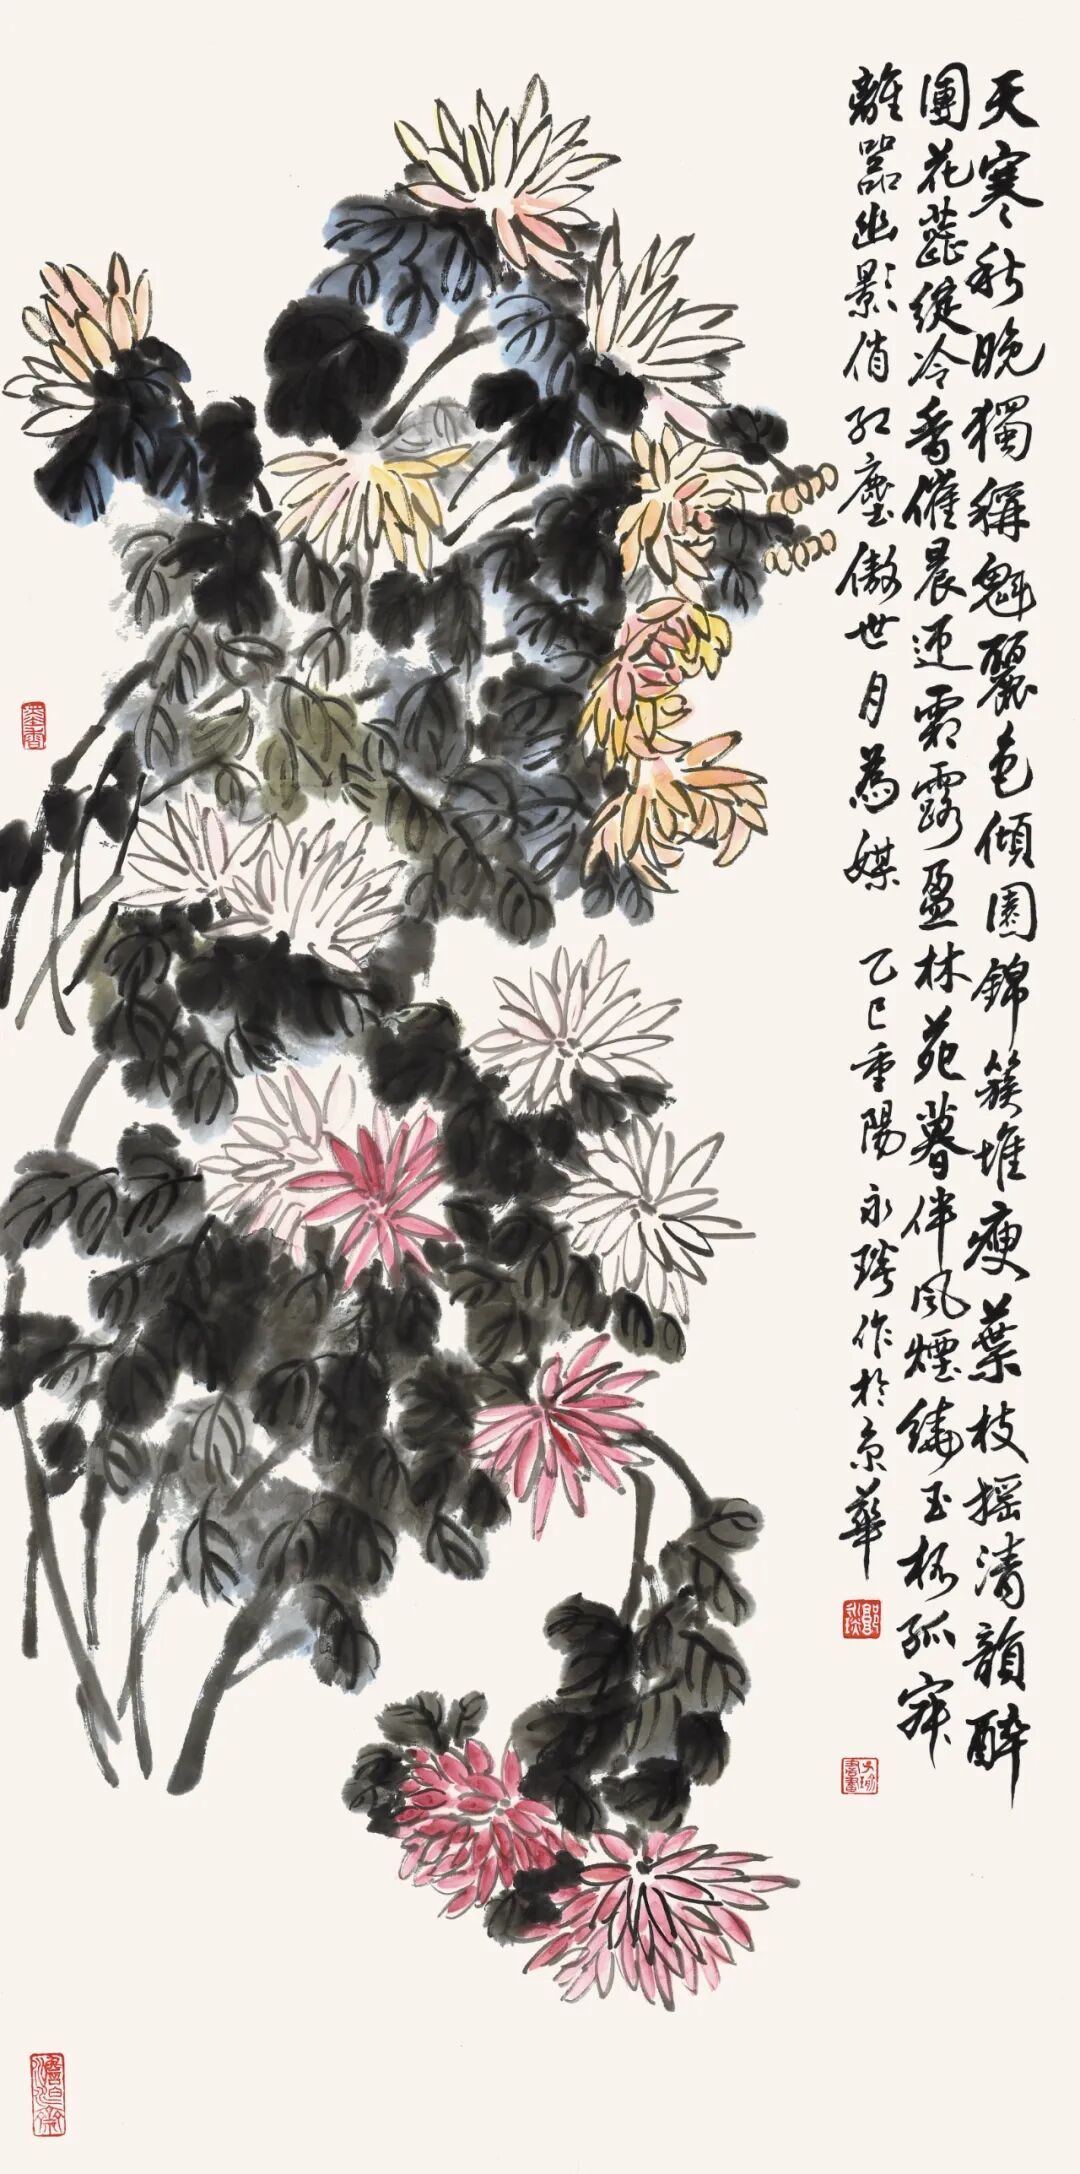 天寒秋晚獨稱魁麗色傾園錦簇堆瘦葉枝搖清韻醉
團花蕊綻冷香催晨迎霜露盈林苑暮伴風煙繞玉杯孤寂
離囂幽影俏紅塵傲世月為媒 乙巳重陽 永作於京華